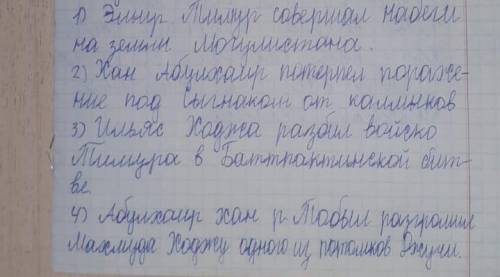 1) Эмир Тимур совершал набеги
на земли Могулистана.
2) Хан Абулхаир потерпел пораже-
ние под Сыгнаком от калмыков
3) Ильяс Ходжа разбил войско
Тимура в Батпактинской бит-
ве.
4) Абулхаир хан р. Тобыл разгромил
Махмуда Ходжу одного из потомков Джучи.